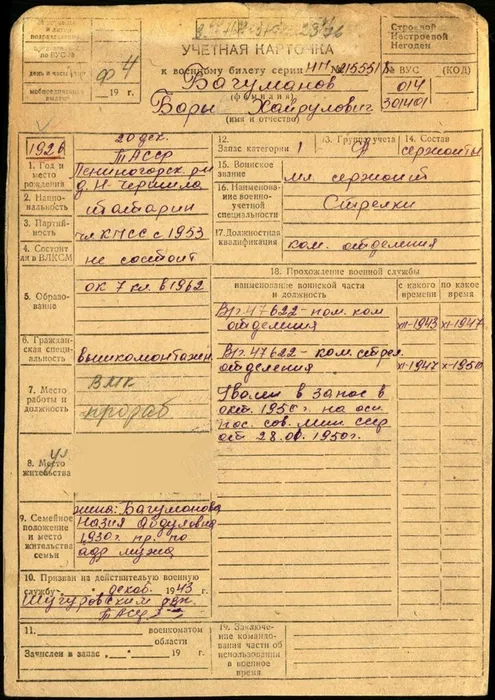 УЧЕТНАЯ КАРТОЧКА
Строевой
Нестроевой
Негоден
к военному билету серии НП № 215551
№ ВУС (КОД)
Вагуманов
(фамилия)
014
день и часы
ф 4
19 г.
Бары Хайрулович
301401
(имя и отчество)
1926
20 дек.
ТАССР
Лениногорск. р-н
д. Н-Чершила
1. Год и место рождения
2. Национальность
татарин
3. Партийность
чл КПСС с 1953
4. Состоит ли в ВЛКСМ
не состоит
5. Образование
ок 7 кл. в 1962
6. Гражданская специальность
вышкомонтажн
7. Место работы и должность
ВМК
прораб
8. Место жительства
9. Семейное положение и место жительства семьи
жена: Вагуманова
Назия Абдуловна
1930 г. пр. по
адр мужа
10. Призван на действительную военную
службу декаб. 1943 г.
Шугуровским рвк
ТАССР
11. военкоматом
области
Зачислен в запас 19 г.
12. Запас категории 1
13. Группа учета
14. Состав
сержанты
15. Воинское звание
мл. сержант
16. Наименование военно-учетной специальности
Стрелки
17. Должностная квалификация
ком. отделения
18. Прохождение военной службы
наименование воинской части и должность
с какого времени
по какое время
В/ч 47622 - пом. ком
отделения
XII-1943
XI-1947
В/ч 47622 - ком. стрел.
отделения
XI-1947
X-1950
Уволен в запас в
окт. 1950 г. на осн.
пос. сов. мин ссср
от 28.01.1950 г.
19. Заключение командования части об использовании в военное время